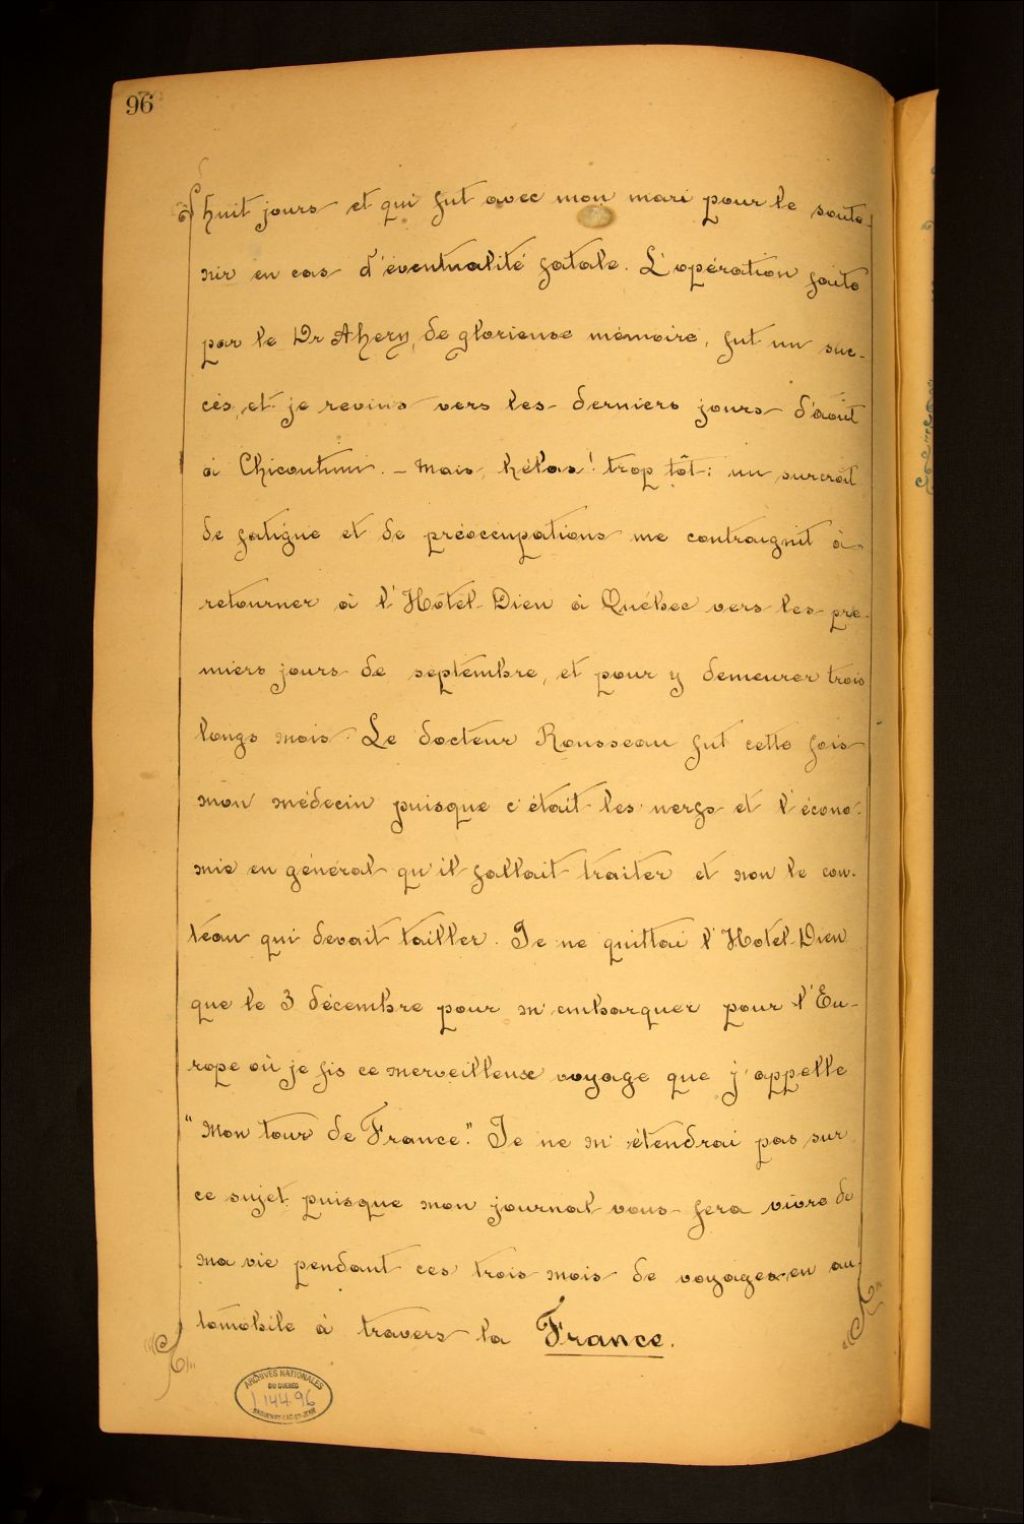 96
huit jours et qui fut avec mon mari pour le soute-
nir en cas d'éventualité fatale. L'opération faite
par le Dr Ahern, de glorieuse mémoire, fut un suc-
cès, et je revins vers les derniers jours d'août
à Chicoutimi. - Mais, hélas! trop tôt: un surcroît
de fatigue et de préoccupations me contraignit à
retourner à l'Hôtel-Dieu à Québec vers les pre-
miers jours de septembre, et pour y demeurer trois
longs mois. Le docteur Rousseau fut cette fois
mon médecin puisque c'était les nerfs et l'écono-
mie en général qu'il fallait traiter et non le cou-
teau qui devait tailler. Je ne quittai l'Hotel-Dieu
que le 3 décembre pour m'embarquer pour l'Eu-
rope où je fis ce merveilleux voyage que j'appelle
"Mon tour de France". Je ne m'étendrai pas sur
ce sujet puisque mon journal vous fera vivre de
ma vie pendant ces trois mois de voyages en au-
tomobile à travers la France.
ARCHIVES NATIONALES
DU QUÉBEC
14496
SAGUENAY-LAC-ST-JEAN